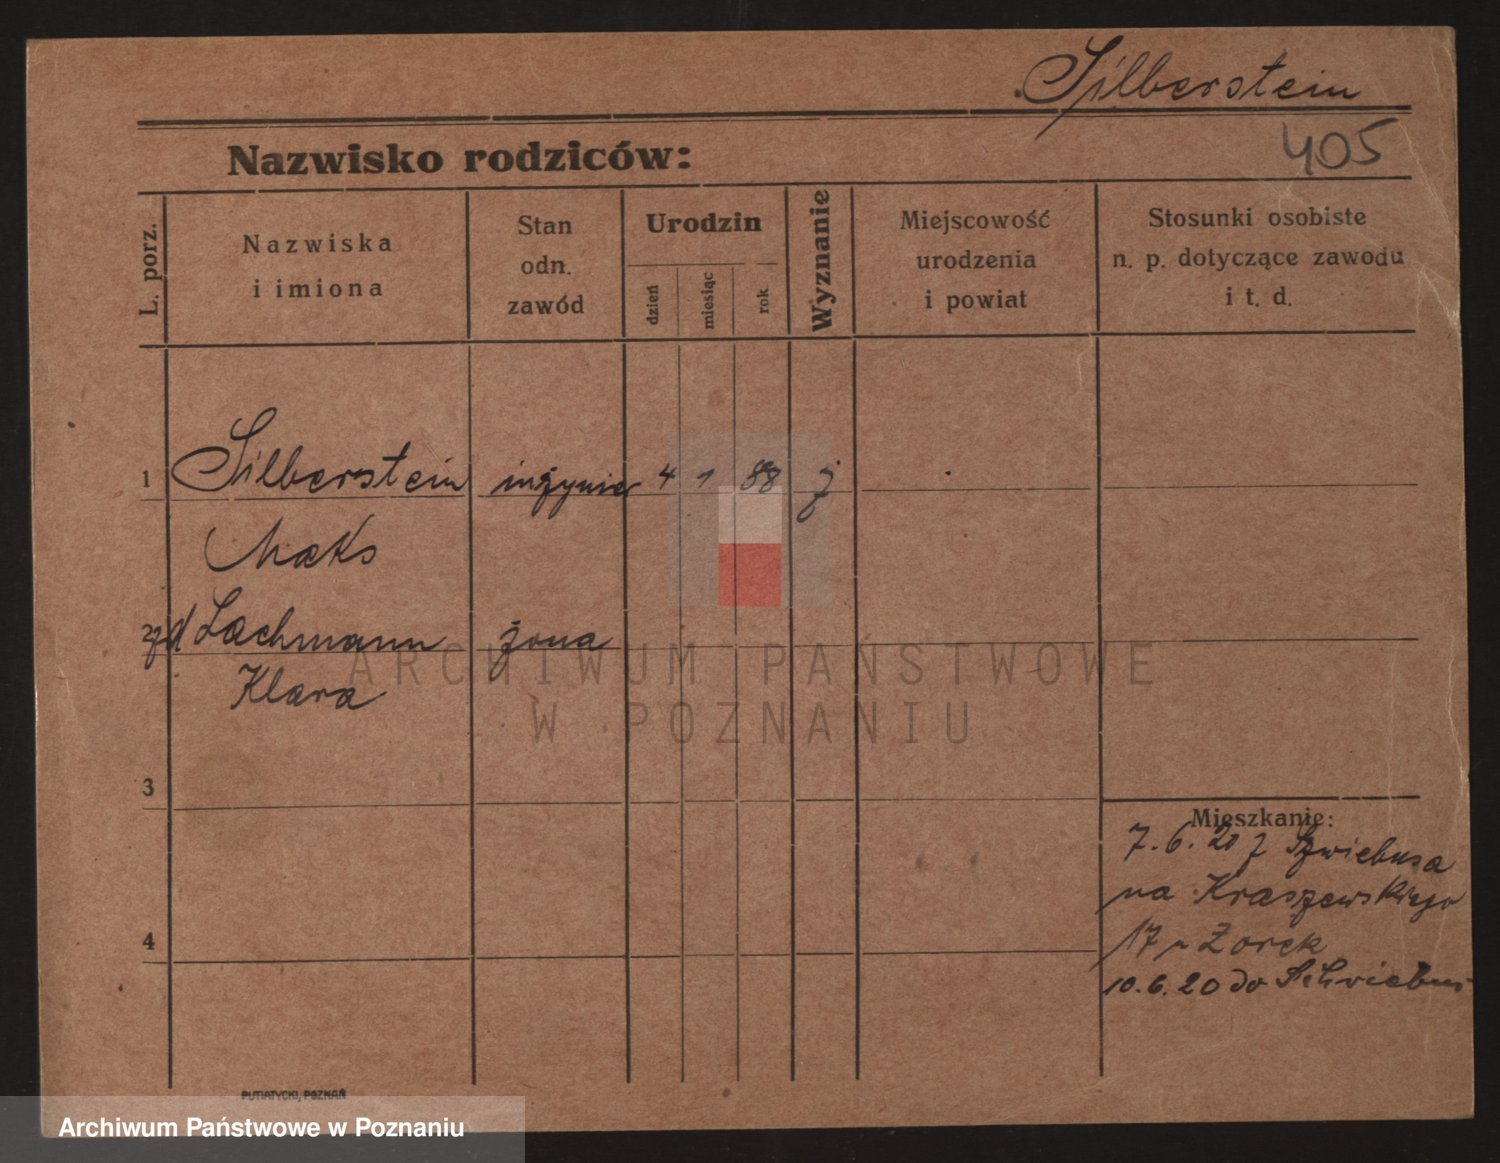 Silberstein
405
Nazwisko rodziców:
L. porz.
Nazwiska
i imiona
Stan
odn.
zawód
Urodzin
dzień
miesiąc
rok
Wyznanie
Miejscowość
urodzenia
i powiat
Stosunki osobiste
n. p. dotyczące zawodu
i t. d.
1 Silberstein inżynier 4 1 88 j
Maks
2 zd Lachmann żona
Klara
3
4
Mieszkanie:
7.6.20 z Szwiebusa
na Kraszewskiego
17 u Zorek
10.6.20 do Schwiebus
PUTIATYCKI, POZNAŃ
ARCHIWUM PAŃSTWOWE
W POZNANIU
Archiwum Państwowe w Poznaniu